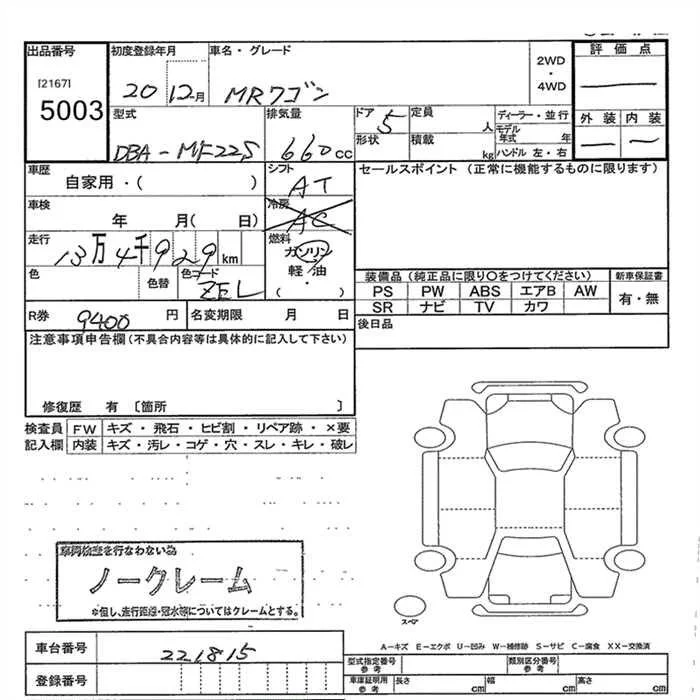 出品番号
[2167]
5003
初度登録年月
20 12月
車名・グレード
MRワゴン
2WD
・
4WD
評価点
型式
DBA-MF22S
排気量
660cc
ドア
5
形状
定員
人
積載
kg
ディーラー・並行
モデル年式 年
ハンドル 左・右
外装 内装
車歴
自家用・( )
シフト
AT
車検
年 月( 日)
冷房
AC
走行
13万4千929km
燃料
ガソリン
軽油
・
( )
色
色替
色コード
ZEL
R券
9400円
名変期限 月 日
セールスポイント(正常に機能するものに限ります)
装備品(純正品に限り○をつけてください)
新車保証書
PS PW ABS エアB AW
有・無
SR ナビ TV カワ
後日品
注意事項申告欄(不具合内容等は具体的に記入して下さい)
修復歴 有 〔箇所 〕
検査員記入欄
FW キズ・飛石・ヒビ割・リペア跡・×要
内装 キズ・汚レ・コゲ・穴・スレ・キレ・破レ
車両検査を行なわない為
ノークレーム
※但し、走行距離・冠水等についてはクレームとする。
スペア
A―キズ E―エクボ U―凹み W―補修跡 S―サビ C―腐食 XX―交換済
車台番号
221815
登録番号
型式指定番号 参考
類別区分番号 参考
車庫証明用 参考
長さ cm 幅 cm 高さ cm